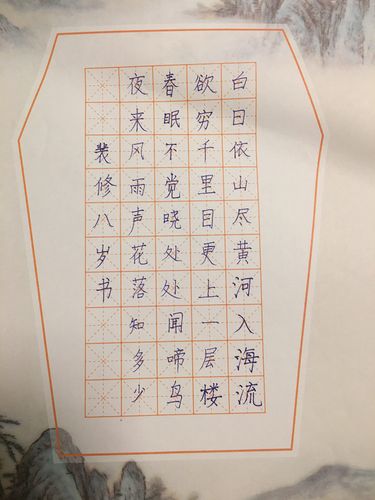 白日依山尽黄河入海流
欲穷千里目更上一层楼
春眠不觉晓处处闻啼鸟
夜来风雨声花落知多少
装修八岁书